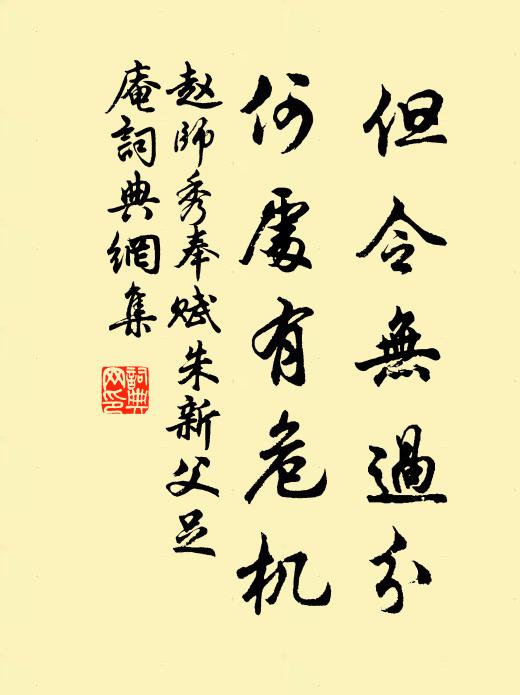 但令無過分
何處有危机
赵師秀奉赋朱新父足
庵詞典網集
詞典网印